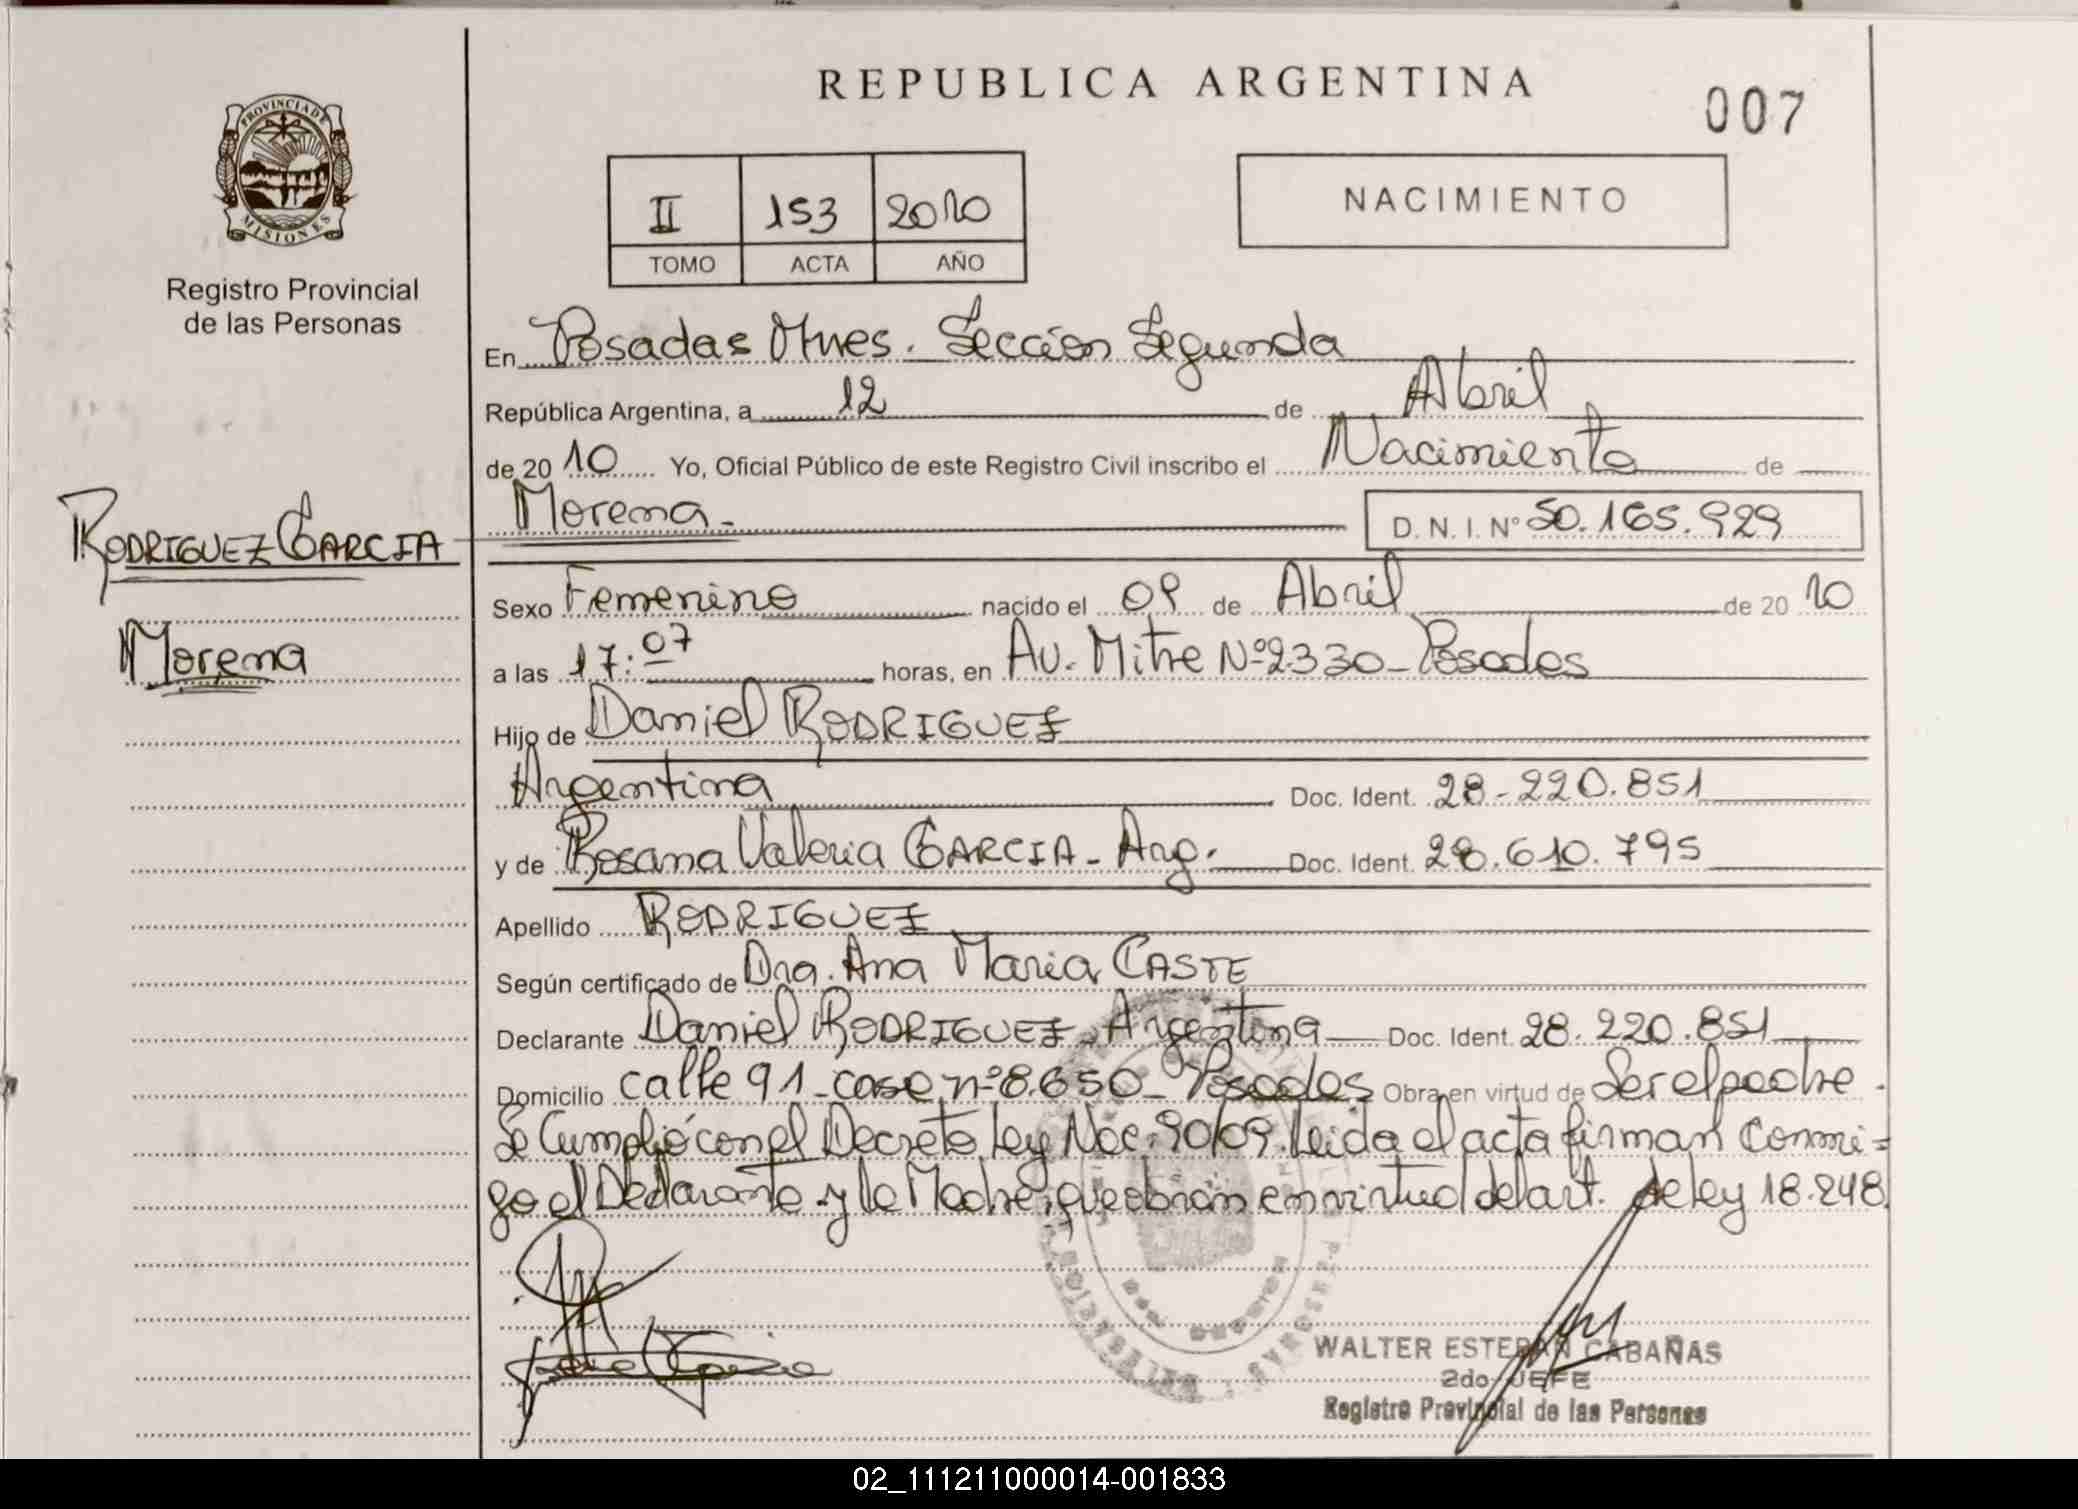 REPUBLICA ARGENTINA
007
PROVINCIA DE
MISIONES
Registro Provincial
de las Personas
II 153 2010
TOMO ACTA AÑO
NACIMIENTO
En Posadas Mnes. Sección Segunda
República Argentina, a 12 de Abril
de 2010 Yo, Oficial Público de este Registro Civil inscribo el Nacimiento de
RODRIGUEZ GARCIA
Morena
Morena.- D. N. I. Nº 50.165.929
Sexo Femenino nacido el 09 de Abril de 20 10
a las 17:07 horas, en Av. Mitre Nº 2330 - Posadas
Hijo de Daniel RODRIGUEZ
Argentina Doc. Ident. 28-220.851
y de Rosana Valeria GARCIA - Arg. Doc. Ident. 28.610.795
Apellido RODRIGUEZ
Según certificado de Dra. Ana Maria CASTE
Declarante Daniel RODRIGUEZ - Argentina Doc. Ident. 28.220.851
Domicilio calle 91 - casa nº 8.650 - Posadas Obra en virtud de Ser el padre.
Se Cumplió con el Decreto Ley Nac. 90/09. Leida el acta firman conmi-
go el Declarante y la Madre, que obran en virtud del art. de ley 18.248.
WALTER ESTEBAN CABAÑAS
2do JEFE
Registro Provincial de las Personas
02_111211000014-001833